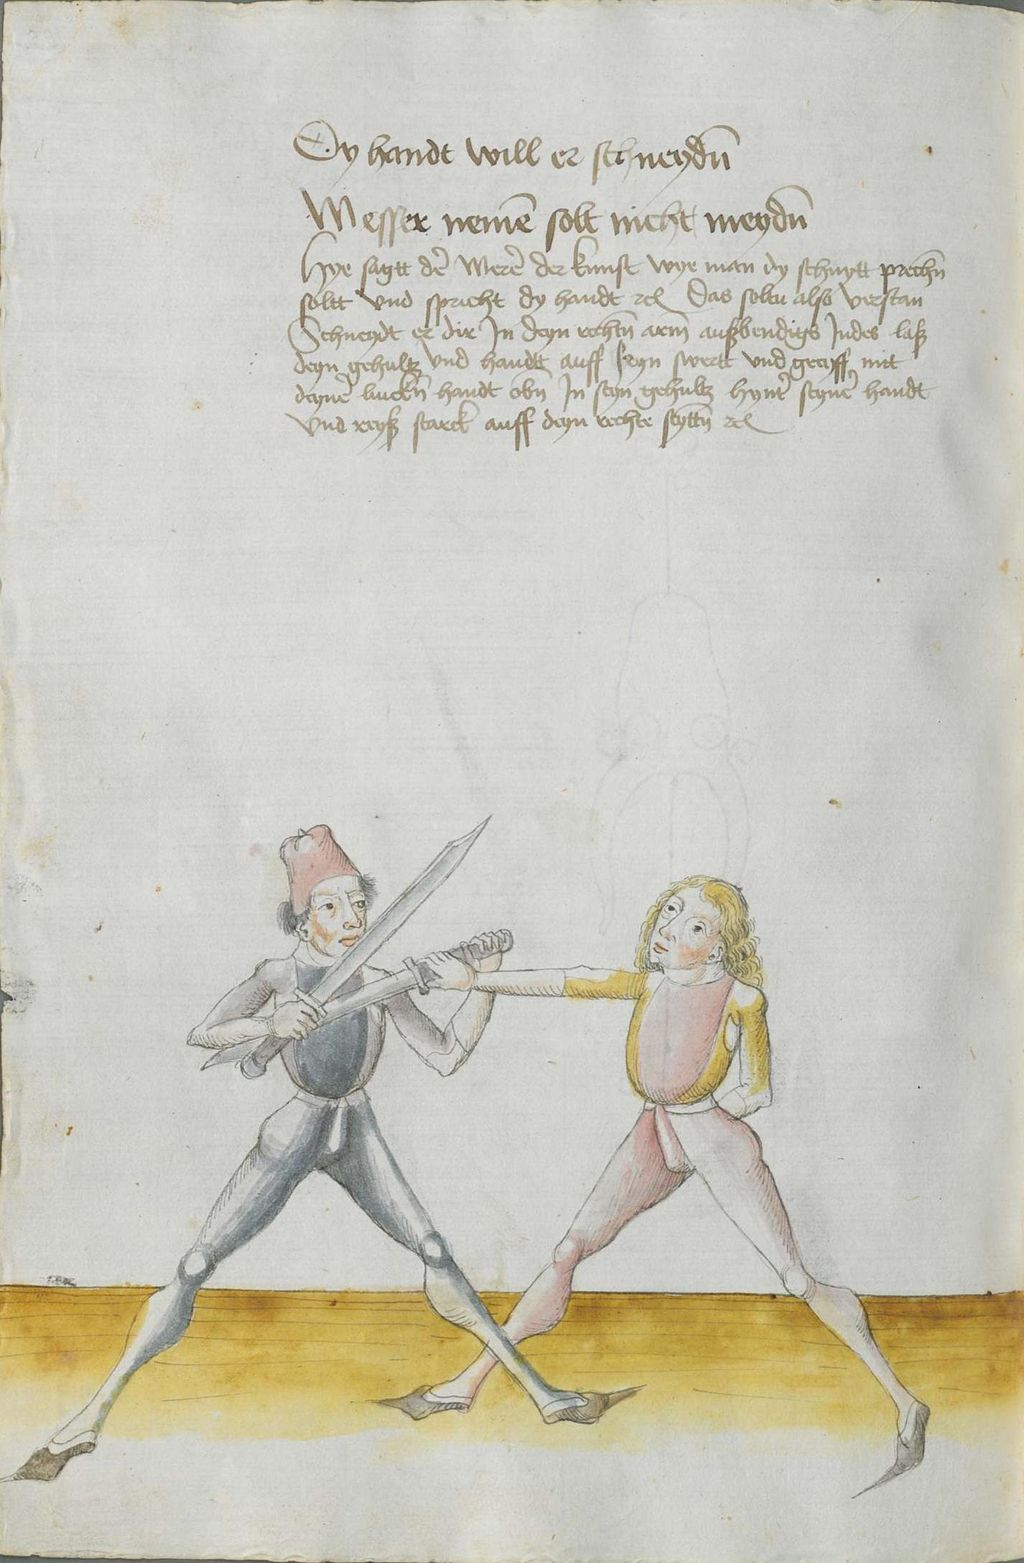 Dy handt will er schneydn̄
Messer nemē solt nicht meydn̄
Hye sagtt dē Merē der kunst wye man dy schnytt prechn̄
soltt vnd spricht dy handt ꝛcͣ Das soltu also verstan
Schneydt er dir In deyn rechtn̄ arm außbendigs Indes laß
deyn gehultz vnd handt auff seyn swertt vnd greyff mit
deynē linckn̄ handt obn̄ In seyn gehultz hynt̄ seynē handt
vnd reyß starck auff deyn rechte seyttn̄ ꝛcͣ